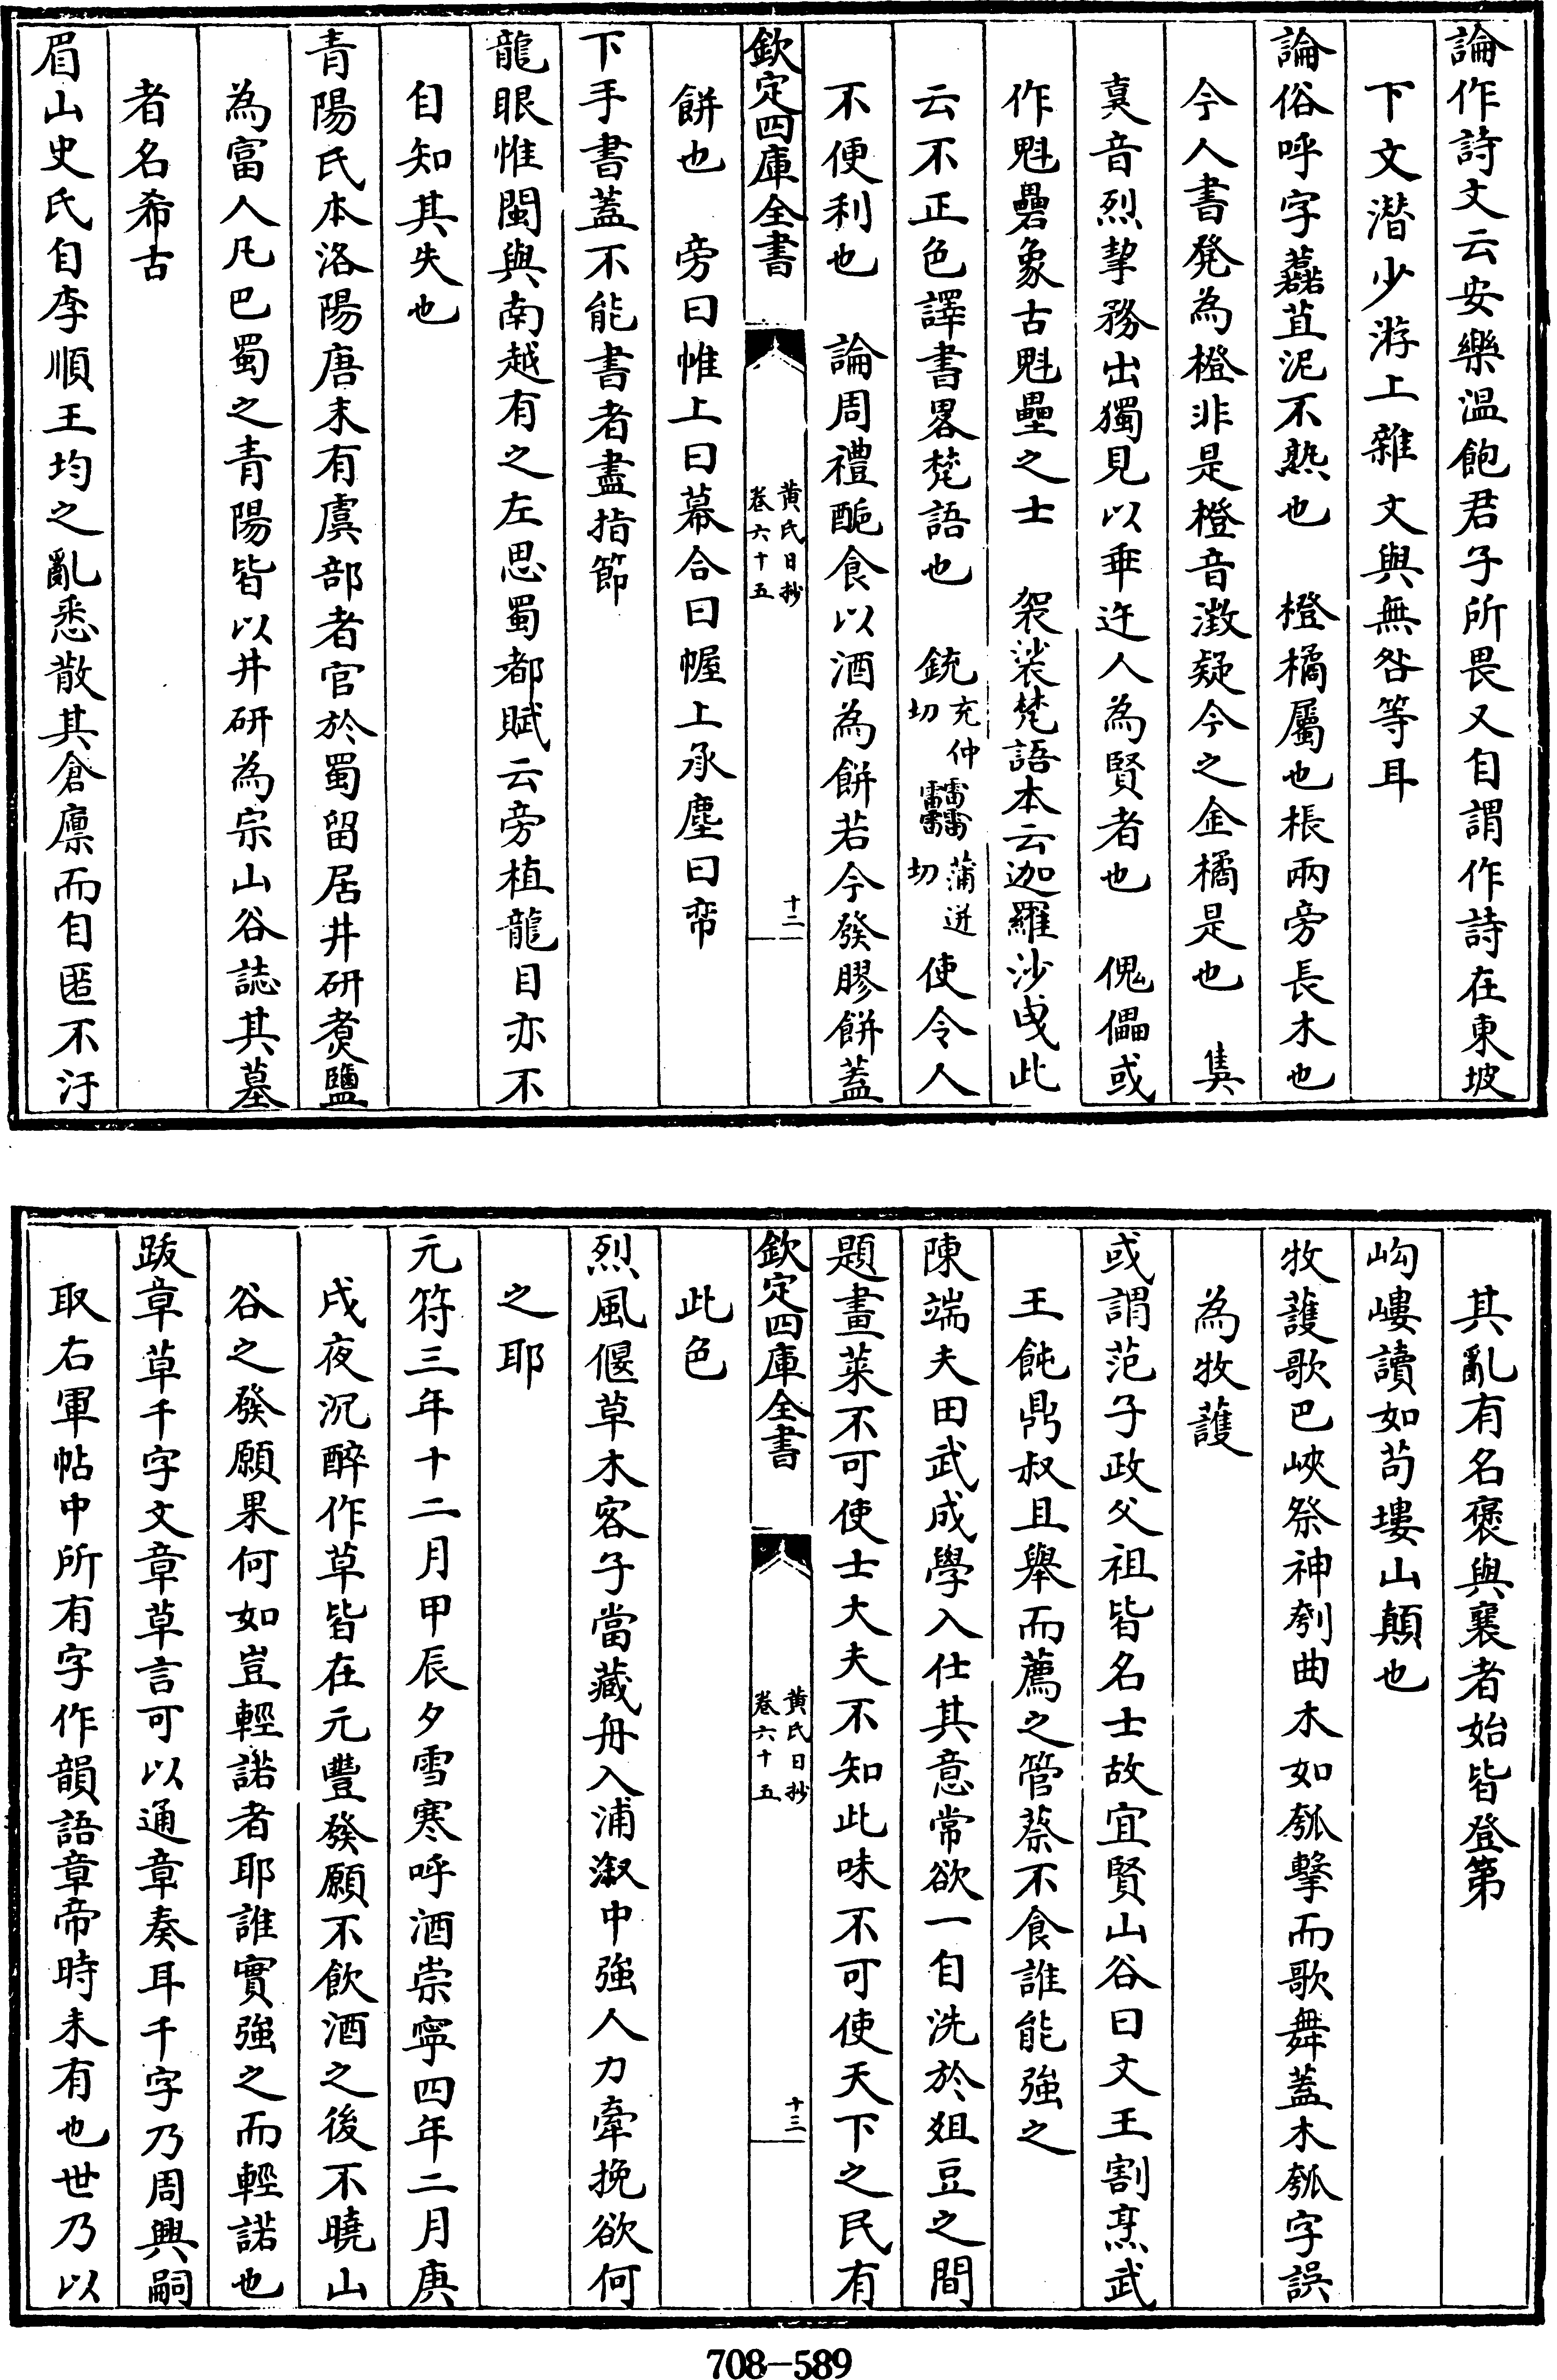 論作詩文云安樂温飽君子所畏又自謂作詩在東坡
下文潛少游上雜文與無咎等耳
論俗呼字藞苴泥不熟也　橙橘屬也棖兩旁長木也
今人書凳為橙非是橙音澂疑今之金橘是也　集
音烈挈務出獨見以乖迕人為賢者也　傀儡或
作魁礨象古魁壘之士　袈裟梵語本云迦羅沙曳此
云不正色譯書畧梵語也　銃充仲切　蒲迸切　使令人
不便利也　論周禮酏食以酒為餅若今發膠餅蓋
欽定四庫全書　黄氏日抄卷六十五　十二
餅也　旁曰帷上曰幕合曰幄上承塵曰帟
下手書蓋不能書者盡指節
龍眼惟閩與南越有之左思蜀都賦云旁植龍目亦不
自知其失也
青陽氏本洛陽唐末有虞部者官於蜀留居井研煑鹽
為富人凡巴蜀之青陽皆以井研為宗山谷誌其墓
者名希古
眉山史氏自李順王均之亂悉散其倉廪而自匿不汙
其亂有名褒與襄者始皆登第
岣嶁讀如苟塿山顛也
牧蒦歌巴峽祭神刳曲木如瓠擊而歌舞蓋木瓠字誤
為牧蒦
或謂范子政父祖皆名士故宜賢山谷曰文王割烹武
王飪鼎叔且舉而薦之管蔡不食誰能強之
陳端夫田武成學入仕其意常欲一自洗於俎豆之間
題畫菜不可使士大夫不知此味不可使天下之民有
欽定四庫全書　黄氏日抄卷六十五　十三
此色
烈風偃草木客子當藏舟入浦漵中強人力牽挽欲何
之耶
元符三年十二月甲辰夕雪寒呼酒崇寧四年二月庚
戌夜沉醉作草皆在元豐發願不飲酒之後不曉山
谷之發願果何如豈輕諾者耶誰實強之而輕諾也
跋章草千字文章草言可以通章奏耳千字乃周興嗣
取右軍帖中所有字作韻語章帝時未有也世乃以
708-589